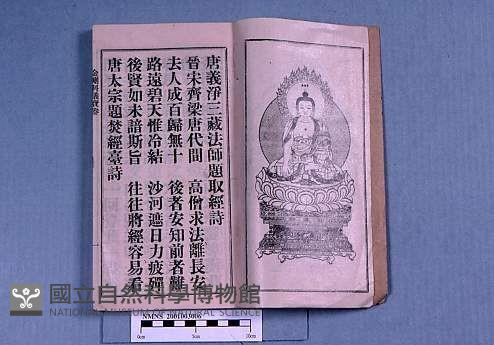 唐義淨三藏法師題取經詩
晉宋齊梁唐代間　高僧求法離長安
去人成百歸無十　後者安知前者難
路遠碧天惟冷結　沙河遮日力疲殫
後賢如未諳斯旨　往往將經容易看
唐太宗題焚經臺詩
國立自然科學博物館
NATIONAL MUSEUM OF NATURAL SCIENCE
NMNS 2001003006
0cm 5cm 10cm